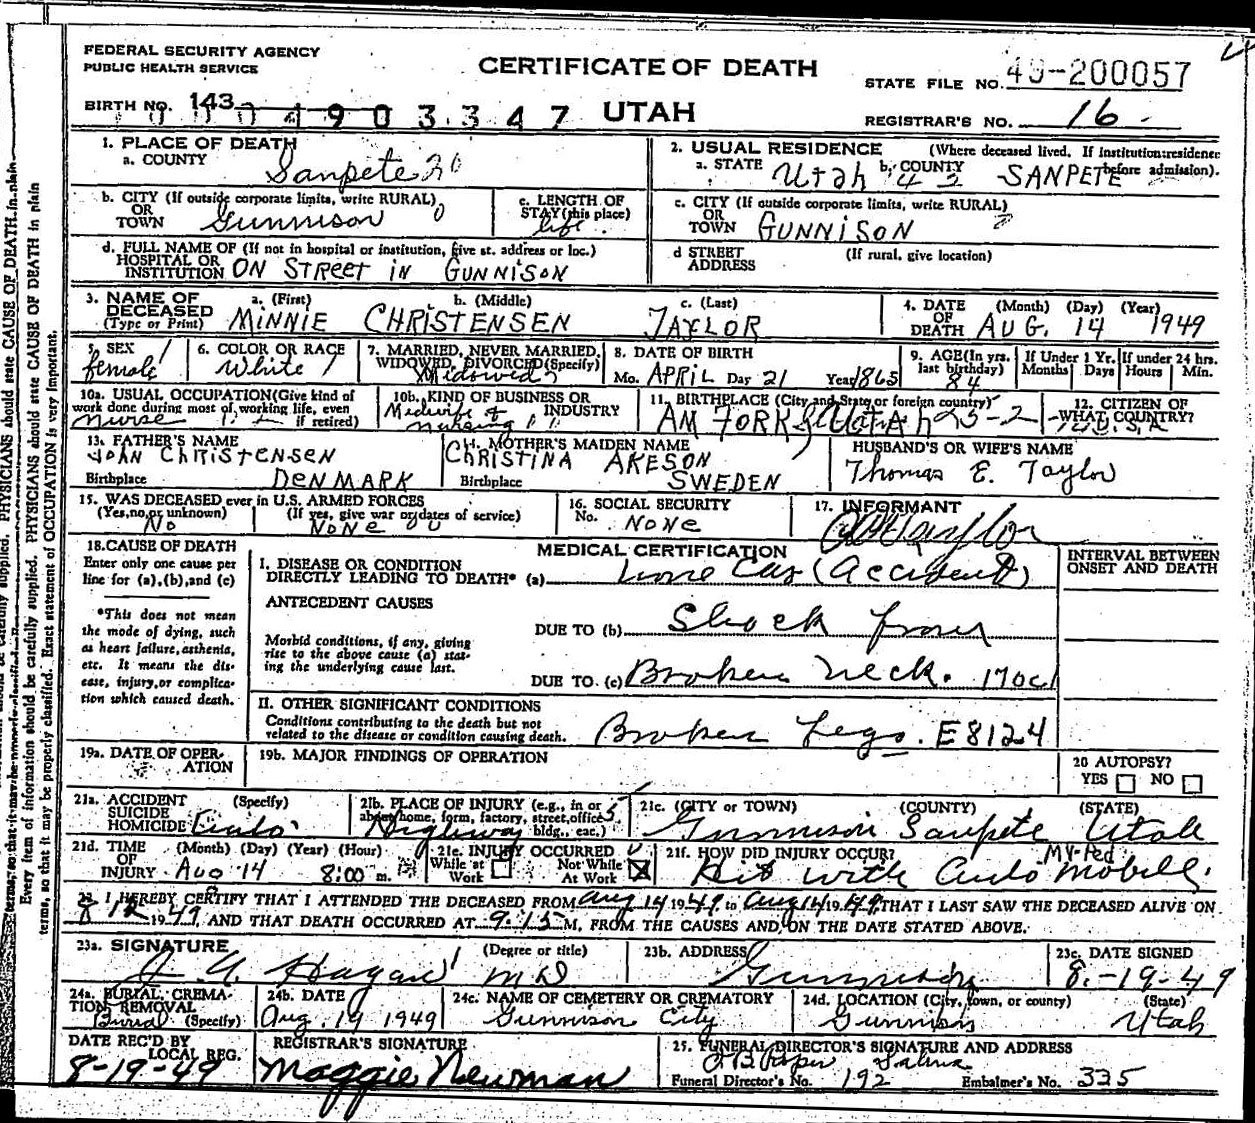 FEDERAL SECURITY AGENCY
PUBLIC HEALTH SERVICE
CERTIFICATE OF DEATH
STATE FILE NO. 49-200057
BIRTH NO. 143
4903347
UTAH
REGISTRAR'S NO. 16
1. PLACE OF DEATH
a. COUNTY Sanpete 20
2. USUAL RESIDENCE (Where deceased lived. If institution: residence before admission).
a. STATE Utah b. COUNTY SANPETE
b. CITY (If outside corporate limits, write RURAL)
OR TOWN Gunnison 0
c. LENGTH OF STAY (this place) life
c. CITY (If outside corporate limits, write RURAL)
OR TOWN GUNNISON
d. FULL NAME OF (If not in hospital or institution, give st. address or loc.)
HOSPITAL OR INSTITUTION ON STREET IN GUNNISON
d STREET ADDRESS (If rural, give location)
3. NAME OF DECEASED (Type or Print)
a. (First) MINNIE b. (Middle) CHRISTENSEN c. (Last) TAYLOR
4. DATE OF DEATH (Month) (Day) (Year) AUG. 14 1949
5. SEX female
6. COLOR OR RACE White
7. MARRIED, NEVER MARRIED, WIDOWED, DIVORCED (Specify) Widowed
8. DATE OF BIRTH
Mo. APRIL Day 21 Year 1865
9. AGE (In yrs. last birthday) 84
If Under 1 Yr. Months Days
If under 24 hrs. Hours Min.
10a. USUAL OCCUPATION (Give kind of work done during most of working life, even if retired) Nurse
10b. KIND OF BUSINESS OR INDUSTRY Midwife & nursing
11. BIRTHPLACE (City and State or foreign country) AM FORK UTAH 25-2
12. CITIZEN OF WHAT COUNTRY? U.S.A
13. FATHER'S NAME
JOHN CHRISTENSEN
Birthplace DENMARK
14. MOTHER'S MAIDEN NAME
CHRISTINA AKESON
Birthplace SWEDEN
HUSBAND'S OR WIFE'S NAME
Thomas E. Taylor
15. WAS DECEASED ever in U.S. ARMED FORCES
(Yes, no, or unknown) No (If yes, give war or dates of service) NONE
16. SOCIAL SECURITY No. NONE
17. INFORMANT
18. CAUSE OF DEATH
Enter only one cause per line for (a), (b), and (c)
MEDICAL CERTIFICATION
INTERVAL BETWEEN ONSET AND DEATH
I. DISEASE OR CONDITION
DIRECTLY LEADING TO DEATH* (a) Car (accident)
*This does not mean the mode of dying, such as heart failure, asthenia, etc. It means the disease, injury, or complication which caused death.
ANTECEDENT CAUSES
DUE TO (b) Shock from
Morbid conditions, if any, giving rise to the above cause (a) stating the underlying cause last.
DUE TO (c) Broken neck.
II. OTHER SIGNIFICANT CONDITIONS
Conditions contributing to the death but not related to the disease or condition causing death.
Broken Legs. E8124
19a. DATE OF OPERATION
19b. MAJOR FINDINGS OF OPERATION
20 AUTOPSY?
YES NO
21a. ACCIDENT SUICIDE HOMICIDE (Specify)
21b. PLACE OF INJURY (e.g., in or about home, farm, factory, street, office bldg., eac.) Highway
21c. (CITY or TOWN) (COUNTY) (STATE)
Gunnison Sanpete Utah
21d. TIME OF INJURY (Month) (Day) (Year) (Hour) Aug 14 8:00 m.
21e. INJURY OCCURRED
While at Work Not While At Work
21f. HOW DID INJURY OCCUR?
MV-Ped
Hit with Automobile.
22. I HEREBY CERTIFY THAT I ATTENDED THE DECEASED FROM Aug 14 1949 to Aug 14 1949, THAT I LAST SAW THE DECEASED ALIVE ON
1949, AND THAT DEATH OCCURRED AT 9:15 M, FROM THE CAUSES AND ON THE DATE STATED ABOVE.
23a. SIGNATURE (Degree or title)
Hagan MD
23b. ADDRESS
Gunnison
23c. DATE SIGNED
8-19-49
24a. BURIAL, CREMATION, REMOVAL (Specify) Burial
24b. DATE
Aug. 19 1949
24c. NAME OF CEMETERY OR CREMATORY
Gunnison City
24d. LOCATION (City, town, or county) (State)
Gunnison Utah
DATE REC'D BY LOCAL REG.
8-19-49
REGISTRAR'S SIGNATURE
Maggie Newman
25. FUNERAL DIRECTOR'S SIGNATURE AND ADDRESS
Salina
Funeral Director's No. 192 Embalmer's No. 335